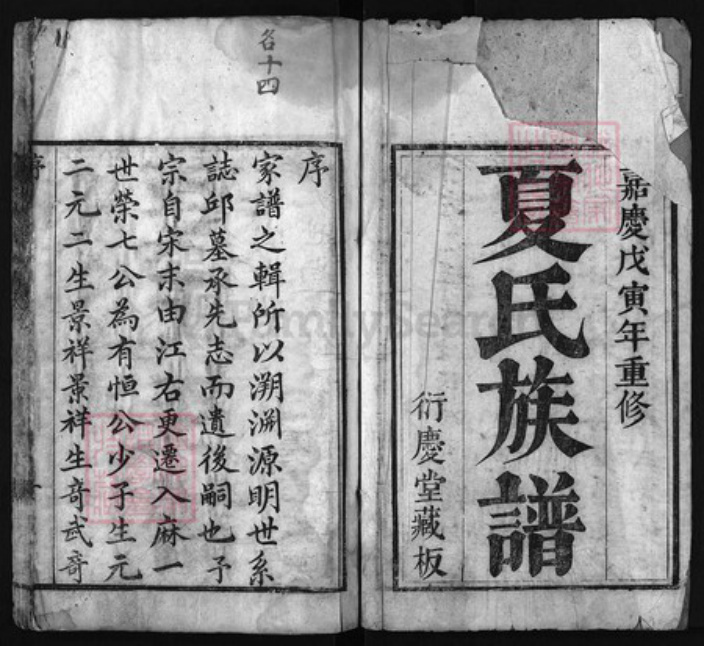 嘉慶戊寅年重修
夏氏族譜
衍慶堂藏板
名十四
序
家譜之輯所以溯淵源明世系
誌邱墓承先志而遺後嗣也予
宗自宋末由江右更遷入麻一
世榮七公為有恒公少子生元
二元二生景祥景祥生奇武奇
序
FamilySearch